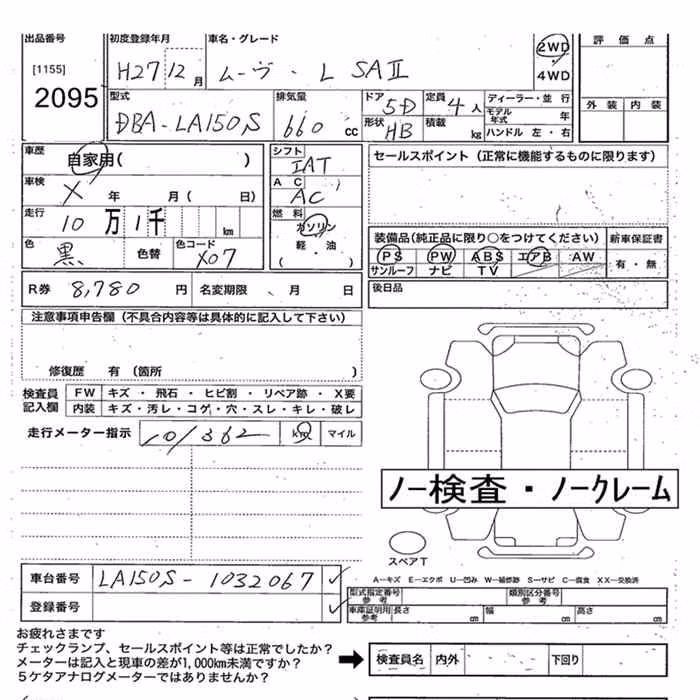 出品番号 初度登録年月 車名・グレード 評価点
[1155] H27 12月 ムーヴ・L SAⅡ 2WD
4WD
2095 型式 排気量 ドア 5D 定員 4人 ディーラー・並行 外装 内装
DBA-LA150S 660cc 形状 HB 積載 kg モデル年式 年
ハンドル 左・右
車歴 自家用( ) シフト IAT セールスポイント(正常に機能するものに限ります)
車検 X 年 月( 日) AC AC
走行 10万1千 km 燃料 ガソリン
軽・油
色 黒 色替 色コード X07 装備品(純正品に限り○をつけてください) 新車保証書
PS PW ABS エアB AW 有・無
サンルーフ ナビ TV
R券 8,780円 名変期限 月 日 後日品
注意事項申告欄(不具合内容等は具体的に記入して下さい)
修復歴 有(箇所 )
検査員記入欄 FW キズ・飛石・ヒビ割・リペア跡・X要
内装 キズ・汚レ・コゲ・穴・スレ・キレ・破レ
走行メーター指示 101362 km マイル
ノー検査・ノークレーム
スペアT
A−キズ E−エクボ U−凹み W−補修跡 S−サビ C−腐食 XX−交換済
車台番号 LA150S-1032067
型式指定番号参考 類別区分番号参考
登録番号 車庫証明用参考 長さ cm 幅 cm 高さ cm
お疲れさまです
チェックランプ、セールスポイント等は正常でしたか?
メーターは記入と現車の差が1,000km未満ですか?
5ケタアナログメーターではありませんか?
検査員名 内外 下回り